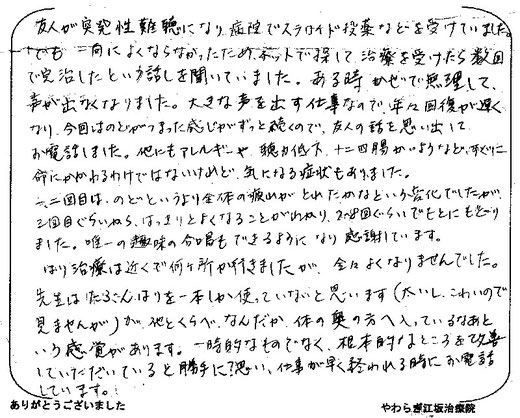 友人が突発性難聴になり、病院でステロイド投薬などを受けていました。
でも一向によくならなかったため、ネットで探して、治療を受けたら数回
で完治したという話しを聞いていました。ある時かぜで無理して、
声が出なくなりました。大きな声を出す仕事なので、年々回復が遅く
なり、今回はのどがつまった感じがずっと続くので、友人の話を思い出して
お電話しました。他にもアレルギーや聴力低下、十二指腸かいようなど、すぐに
命にかかわるわけではないけれど、気になる症状もありました。
一、二回目は、のどというより全体の疲れがとれたかなという変化でしたが、
三回目ぐらいから、はっきりとよくなることがわかり、7~8回ぐらいでもとにもどり
ました。唯一の趣味の合唱もできるようになり感謝しています。
はり治療は近くで何ヶ所か行きましたが、全々よくなりませんでした。
先生はたぶんはりを一本しか使っていないと思います(太いし、こわいので
見ませんが)が、他とくらべ、なんだか、体の奥の方へ入っているなあと
いう感覚があります。一時的なものでなく、根本的なところを改善
していただいていると勝手に?思い、仕事が早く終われる時にお電話
しています。
ありがとうございました
やわらぎ江坂治療院